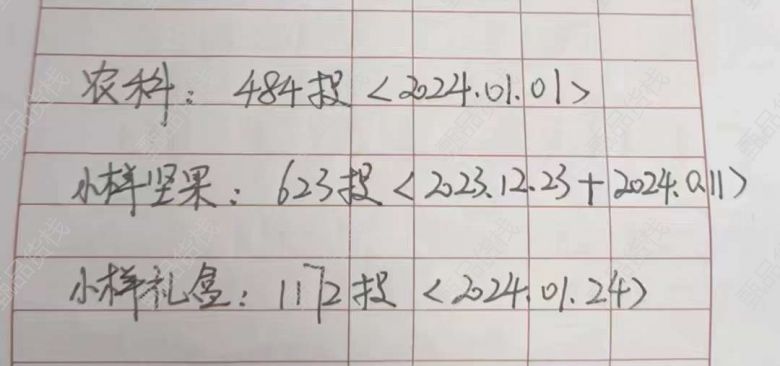 农科：484投<2024.01.01>
小样坚果：623投<2023.12.23+2024.0.11>
小样礼盒：1172投<2024.01.24>